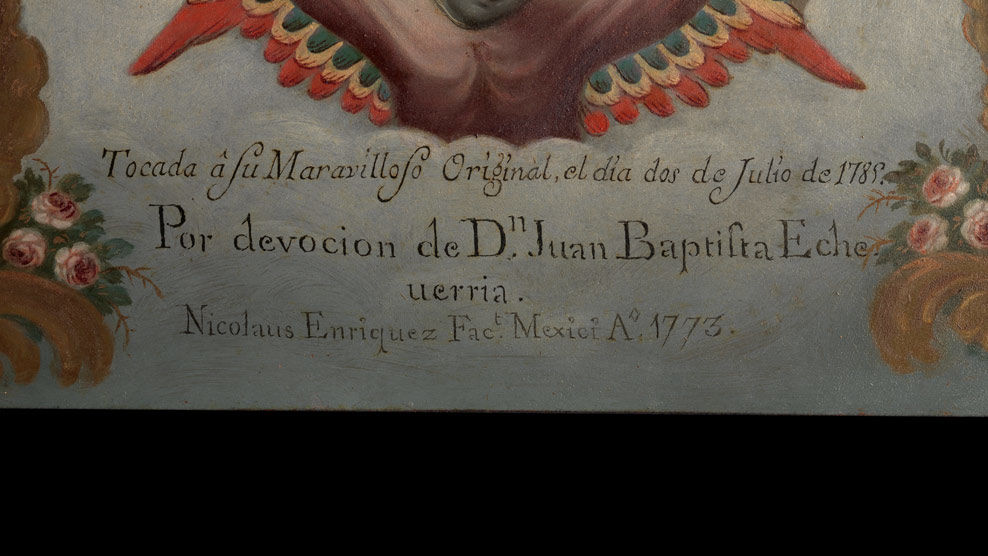 Tocada â ſu Maravilloſo Original, el dia dos de Julio de 1789.
Por devocion de D.ⁿ Juan Baptiſta Eche-
uerria.
Nicolaus Enriquez Fac.ᵗ Mexici A.º 1773.